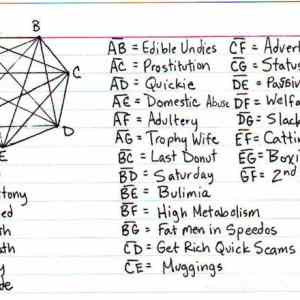 B
C
D
E
AB = Edible Undies
AC = Prostitution
AD = Quickie
AE = Domestic Abuse
AF = Adultery
AG = Trophy Wife
BC = Last Donut
BD = Saturday
BE = Bulimia
BF = High Metabolism
BG = Fat men in Speedos
CD = Get Rich Quick Scams
CE = Muggings
CF = Advert
CG = Status
DE = Passiv
DF = Welfa
DG = Slack
EF = Cattin
EG = Boxi
GF = 2nd